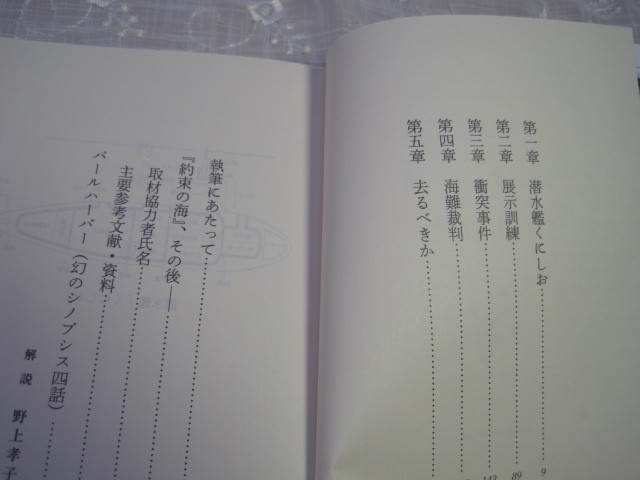 第一章　潜水艦くにしお………9
第二章　展示訓練………89
第三章　衝突事件………143
第四章　海難裁判………
第五章　去るべきか………
執筆にあたって………
『約束の海』、その後――………
取材協力者氏名………
主要参考文献・資料………
パールハーバー（幻のシノプシス四話）………
解説　野上孝子